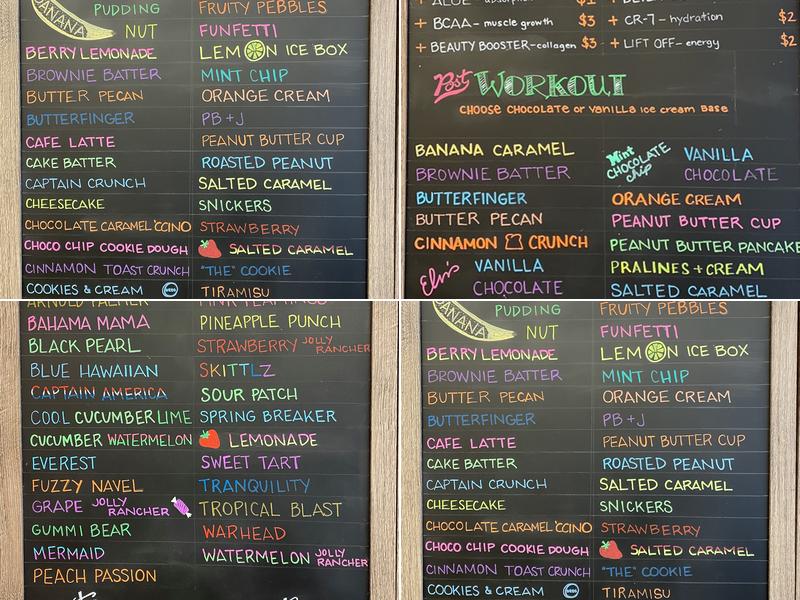 BANANA PUDDING
NUT
BERRY LEMONADE
BROWNIE BATTER
BUTTER PECAN
BUTTERFINGER
CAFE LATTE
CAKE BATTER
CAPTAIN CRUNCH
CHEESECAKE
CHOCOLATE CARAMEL 'CCINO
CHOCO CHIP COOKIE DOUGH
CINNAMON TOAST CRUNCH
COOKIES & CREAM
FRUITY PEBBLES
FUNFETTI
LEMON ICE BOX
MINT CHIP
ORANGE CREAM
PB + J
PEANUT BUTTER CUP
ROASTED PEANUT
SALTED CARAMEL
SNICKERS
STRAWBERRY
SALTED CARAMEL
"THE" COOKIE
TIRAMISU
+ BCAA - muscle growth $3
+ BEAUTY BOOSTER - collagen $3
+ CR-7 - hydration $2
+ LIFT OFF - energy $2
Post WORKOUT
CHOOSE CHOCOLATE or VANILLA ice cream Base
BANANA CARAMEL
BROWNIE BATTER
BUTTERFINGER
BUTTER PECAN
CINNAMON CRUNCH
Elvis VANILLA
CHOCOLATE
Mint CHOCOLATE Chip VANILLA
CHOCOLATE
ORANGE CREAM
PEANUT BUTTER CUP
PEANUT BUTTER PANCAKE
PRALINES + CREAM
SALTED CARAMEL
ARNOLD PALMER
BAHAMA MAMA
BLACK PEARL
BLUE HAWAIIAN
CAPTAIN AMERICA
COOL CUCUMBER LIME
CUCUMBER WATERMELON
EVEREST
FUZZY NAVEL
GRAPE JOLLY RANCHER
GUMMI BEAR
MERMAID
PEACH PASSION
PINK FLAMINGO
PINEAPPLE PUNCH
STRAWBERRY JOLLY RANCHER
SKITTLZ
SOUR PATCH
SPRING BREAKER
LEMONADE
SWEET TART
TRANQUILITY
TROPICAL BLAST
WARHEAD
WATERMELON JOLLY RANCHER
BANANA PUDDING
NUT
BERRY LEMONADE
BROWNIE BATTER
BUTTER PECAN
BUTTERFINGER
CAFE LATTE
CAKE BATTER
CAPTAIN CRUNCH
CHEESECAKE
CHOCOLATE CARAMEL 'CCINO
CHOCO CHIP COOKIE DOUGH
CINNAMON TOAST CRUNCH
COOKIES & CREAM
FRUITY PEBBLES
FUNFETTI
LEMON ICE BOX
MINT CHIP
ORANGE CREAM
PB + J
PEANUT BUTTER CUP
ROASTED PEANUT
SALTED CARAMEL
SNICKERS
STRAWBERRY
SALTED CARAMEL
"THE" COOKIE
TIRAMISU